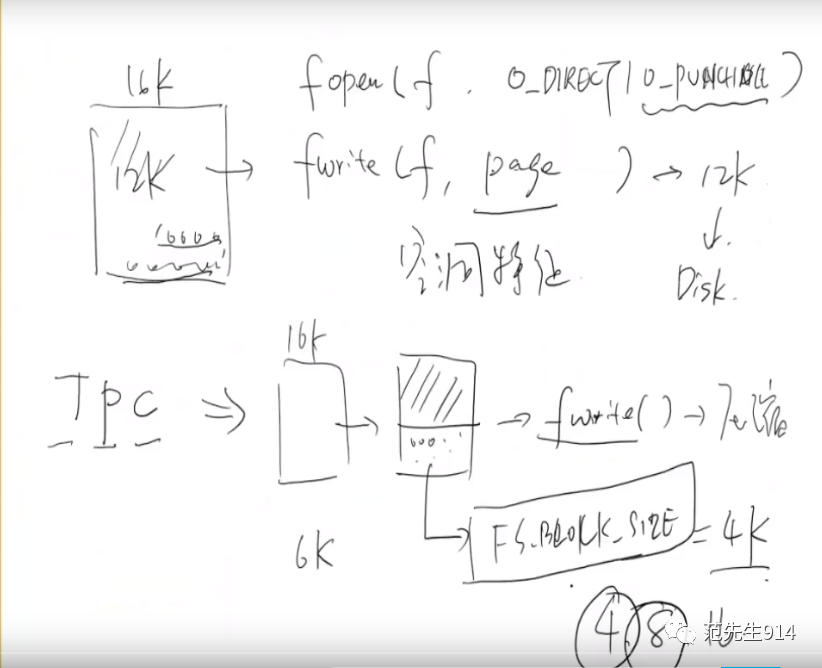 16K
fopen(f, O_DIRECT | O_PUNCHHOLE)
12K
fwrite(f, page ) → 12K
0000
空洞特征
Disk.
16K
TPC ⇒
000
→ fwrite() →
FS_BLOCK_SIZE = 4K
6K
4 8 16
范先生914